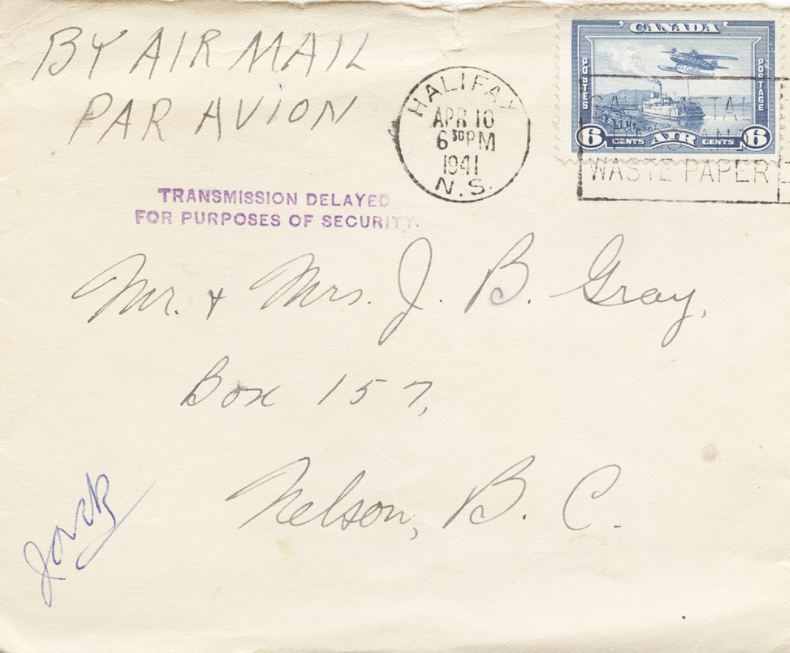 BY AIR MAIL
PAR AVION
HALIFAX
APR 10
6 30 PM
1941
N.S.
CANADA
POSTES
POSTAGE
6 CENTS AIR CENTS 6
WASTE PAPER
TRANSMISSION DELAYED
FOR PURPOSES OF SECURITY.
Mr. & Mrs. J. B. Gray,
Box 157,
Nelson, B. C.
Jack